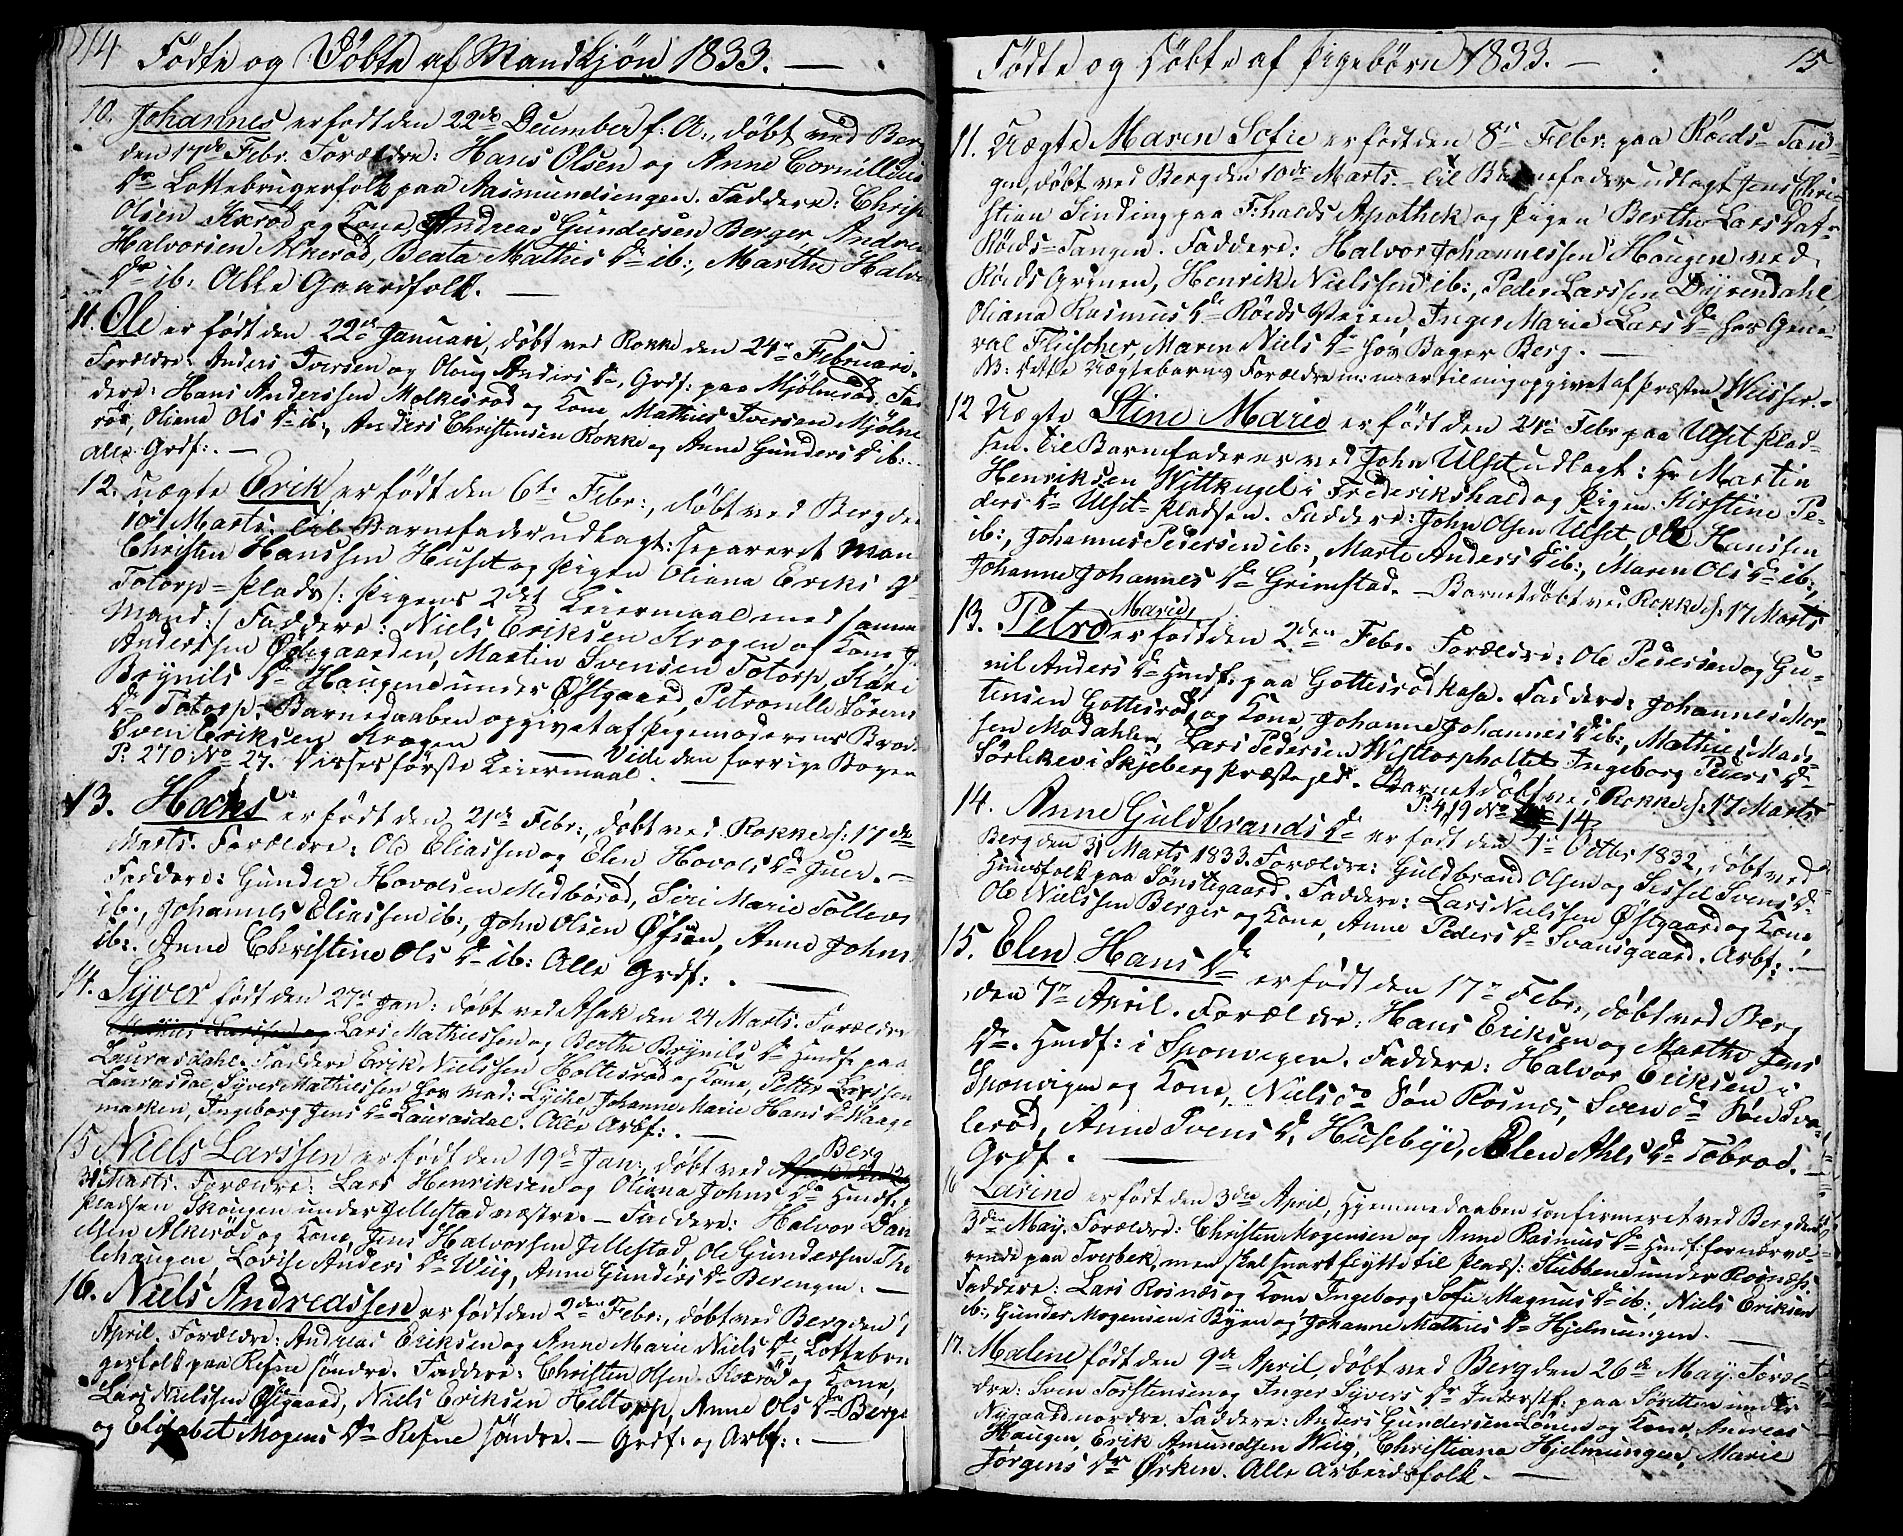 14 Födte og Döbte af Mandkjön 1833. —
10. Johannes er födt den 22de December f: A:, döbt ved Berg
den 17de Febr. Forældre: Hans Olsen og Anne Cornillius
Dr Lottebrugerfolk paa Aasmundsengen. Faddere: Christ
Olsen Kerød og Kone, Andreas Gundersen Berger, Andrea
Halvorsen Akerød, Beata Mathis Dr ib:, Marthe Halvor
Dr ib: Alle Gaardfolk. —
11. Ole er født den 22de Januari, döbt ved Rokke den 24de Februari.
Forældre: Anders Iversen og Oloug Anders Dr, Grdf: paa Mjölneröd. Fad
dere: Hans Anderssen Molkeröd og Kone, Mathies Iversen Mjölne
röd, Oliana Ols Dr ib:, Anders Christensen Rokke og Anne Gunders Dr ib:
alle Grdf:. —
12. uægte Erik er født den 6te Febr:, döbt ved Berg den
10de Marts. Til Barnefader udlagt: separeret Man
Christen Hanssen Huset og Pigen Oliana Eriks Dr
Totorp=Plads /: Pigens 2det Leiermaal med samme
Mand:/ Faddere: Niels Eriksen Krogen og Kone J.
Anderssen Ödegaarden, Martin Svensen Totorp, Kari
Brynils Dr Haugene under Östgaard, Petronelle Sörens
Dr Totorp. Barnedaaben opgivet af Pigemoderens Brod
Sven Eriksen Krogen — Vide den forrige Bogen
P: 270 No 27. Disses förste Leiermaal.
13. Hans er födt den 21de Febr:, döbt ved Rokke d: 17de
Marts. Forældre: Ole Eliassen og Elen Hovols Dr Juer. —
Faddere: Gunder Hovolsen Medböröd, Siri Marie Tollevs
ib:, Johannes Eliassen ib:, John Olsen Öfsen, Anne Johns
ib:. Anne Christine Ols Dr ib: Alle Grdf:. —
14. Syver født den 27de Jan: döbt ved Asak den 24 Marts. Forældre
Lars Mathiessen og Berthe Brynils Dr Husmf: paa
Laurasdahl. Faddere Erik Nielssen Holteröd og Kone, Petter Larssen
Laurasdal, Syver Mathiessen hos Mad: Lyche, Johanne Marie Hans Dr Waage
marken, Ingeborg Jens Dr Laurasdal. Alle Arbf:. —
15 Niels Larssen er födt den 19de Jan:, döbt ved Berg
31 Marts. Forældre: Lars Henriksen og Oliana Johns Dr Husmf:
Pladsen Skougen under Jellestad vestre. — Faddere: Halvor Dan
elsen Akeröd og Kone, Jens Halvorsen Jellestad, Ole Gundersen The
lehaugen, Lovise Anders Dr Wiig, Anne Gunders Dr Berengen. —
16. Niels Andreassen er födt den 2den Febr:, döbt ved Berg den 7
April. Forældre: Andreas Eriksen og Anne Marie Niels Dr, Lottebru
gerfolk paa Refne söndre. Faddere: Christen Olsen Kexröd og Kone,
Lars Nielssen Östgaard, Niels Eriksen Heltorp, Anne Ols Dr Berge
og Elisabet Mogens Dr Refne söndre. — Grdf: og Arbf:. —
Födte og Döbte af Pigebörn 1833. — 15
11. Uægte Maren Sofie er födt den 8de Febr: paa Röids=Tan=
gen, döbt ved Berg den 10de Marts. — Til Barnefader udlagt Jens Chri=
stian Sinding paa F:halds Apothek og Pigen Berthe Lars Dat=
Röids=Tangen. Faddere: Halvor Johannessen Haugen ved
Röids Grinen, Henrik Nielssen ib:, Peder Larssen Dyrendahl,
Oliana Rasmus Dr Röids Veien, Inger Marie Lars Dr hos Gene=
ral Fleischer, Maren Niels Dr hos Bager Berg. —
NB: Dette Uægtebarns Forældre m: m: er til mig opgivet af Præsten Weisser. —
12 Uægte Stine Marie er födt den 24de Febr paa Ulset Plad=
sen. Til Barnefader er ved John Ulset udlagt: Hr Martin
Henriksen Wittkugel i Frederikshald og Pigen Kirstine Pe=
ders Dr Ulset=Pladsen. Faddere: John Olsen Ulset, Ole Hanssen
ib:, Johannes Pedersen ib:, Marte Anders Dr ib:, Maren Ols Dr ib:,
Johanne Johannes Dr Grimstad. — Barnet döbt ved Rokke d: 17 Marts
13. Petro Marie, er födt den 2den Febr. Forældre: Ole Pedersen og Gu=
nil Anders Dr Husmf: paa Gotteröd Kasa. Faddere: Johannes Mor=
tensen Gotteröd og Kone, Johanne Johannes Dr ib:, Mathies Mads=
sen Modahlen, Lars Pedersen Wisttorpholtet Ingeborg Peders Dr
Sörlikevi Skjeberg Præstegjeld. Barnet döbt ved Rokke d: 17 Marts
P: 419 No 14
14. Anne Guldbrands Dr er födt den 7de Octbr 1832, döbt ved
Berg den 31 Marts 1833. Forældre: Guldbrand Olsen og Sissel Svens Dr
Huusfolk paa Sönstegaard. Faddere: Lars Nielssen Östgaard og Kone
Ole Nielssen Berger og Kone, Anne Peders Dr Svansgaard. Arbf:. —
15. Elen Hans Dr er födt den 17de Febr:, döbt ved Berg
den 7de April. Forældre: Hans Eriksen og Marthe Jens
Dr. Husmf: i Sponvigen. Faddere: Halvor Eriksen i
Sponvigen og Kone, Niels do Sön Rosnes, Sven do Sön Sva=
leröd, Anne Svens Dr, Husebye, Elen Ahls Dr Töbröd.
Grdf. —
16 Larine er födt den 3die April, Hjemmedaaben confirmeret ved Berg den
3die May. Forældre: Christen Mogensen og Anne Rasmus Dr Husmf: fornærvæ=
rende paa Torsbek, men skal snart flytte til Plads: Stubbene under Rosnes.
Faddere: Lars Rosnes og Kone Ingeborg Sofie Magnus Dr ib:, Niels Eriksen
ib:, Gunder Mogensen i Byen og Johanne Mathies Dr Hjelmungen. —
17. Malene födt den 9de April, döbt ved Berg den 26de May. Foræl=
dre: Sven Torstensen og Inger Syvers Dr Inderstf: paa Söretten under
Nygaard nordre. Faddere: Anders Gundersen Lörene og Kone, Andreas
Haugen, Erik Amundsen Wiig, Christiana Hjelmungen, Marie
Jörgens Dr Örken. Alle Arbeidsfolk. —